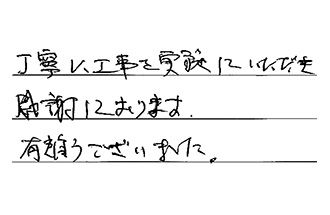 丁寧に工事を実施していただき
感謝しております.
有難うございました。